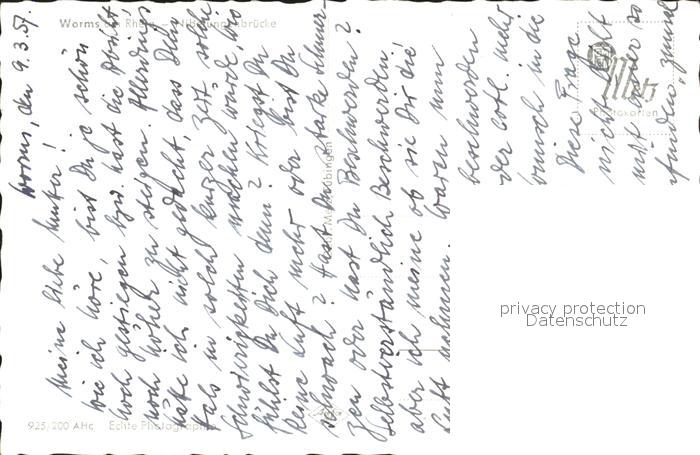 Worms am Rhein - Nibelungenbrücke
Worms, den 9.3.57.
Meine liebe Mutter!
Wie ich höre, bist Du ja schön
hoch gestiegen bzw. hast die Absicht
noch höher zu steigen. Allerdings
hätte ich nicht gedacht, dass Dein
Hals in solch kurzer Zeit solche
Schwierigkeiten machen würde, wie
fühlst Du Dich denn? Kriegst Du
keine Luft mehr oder bist Du
schwach? Hast Du starke Schmer-
zen oder hast Du Beschwerden?
Selbstverständlich Beschwerden,
aber ich meine ob sie Dir die
Luft nehmen. Waren nun
Beschwerden
der evtl. mehr
Wunsch in die
Diese Frage
nicht leicht
mit einer so
finden, zumal
Metz
Photokarten
Metz Tübingen
925/200 AHc Echte Photographie
privacy protection
Datenschutz